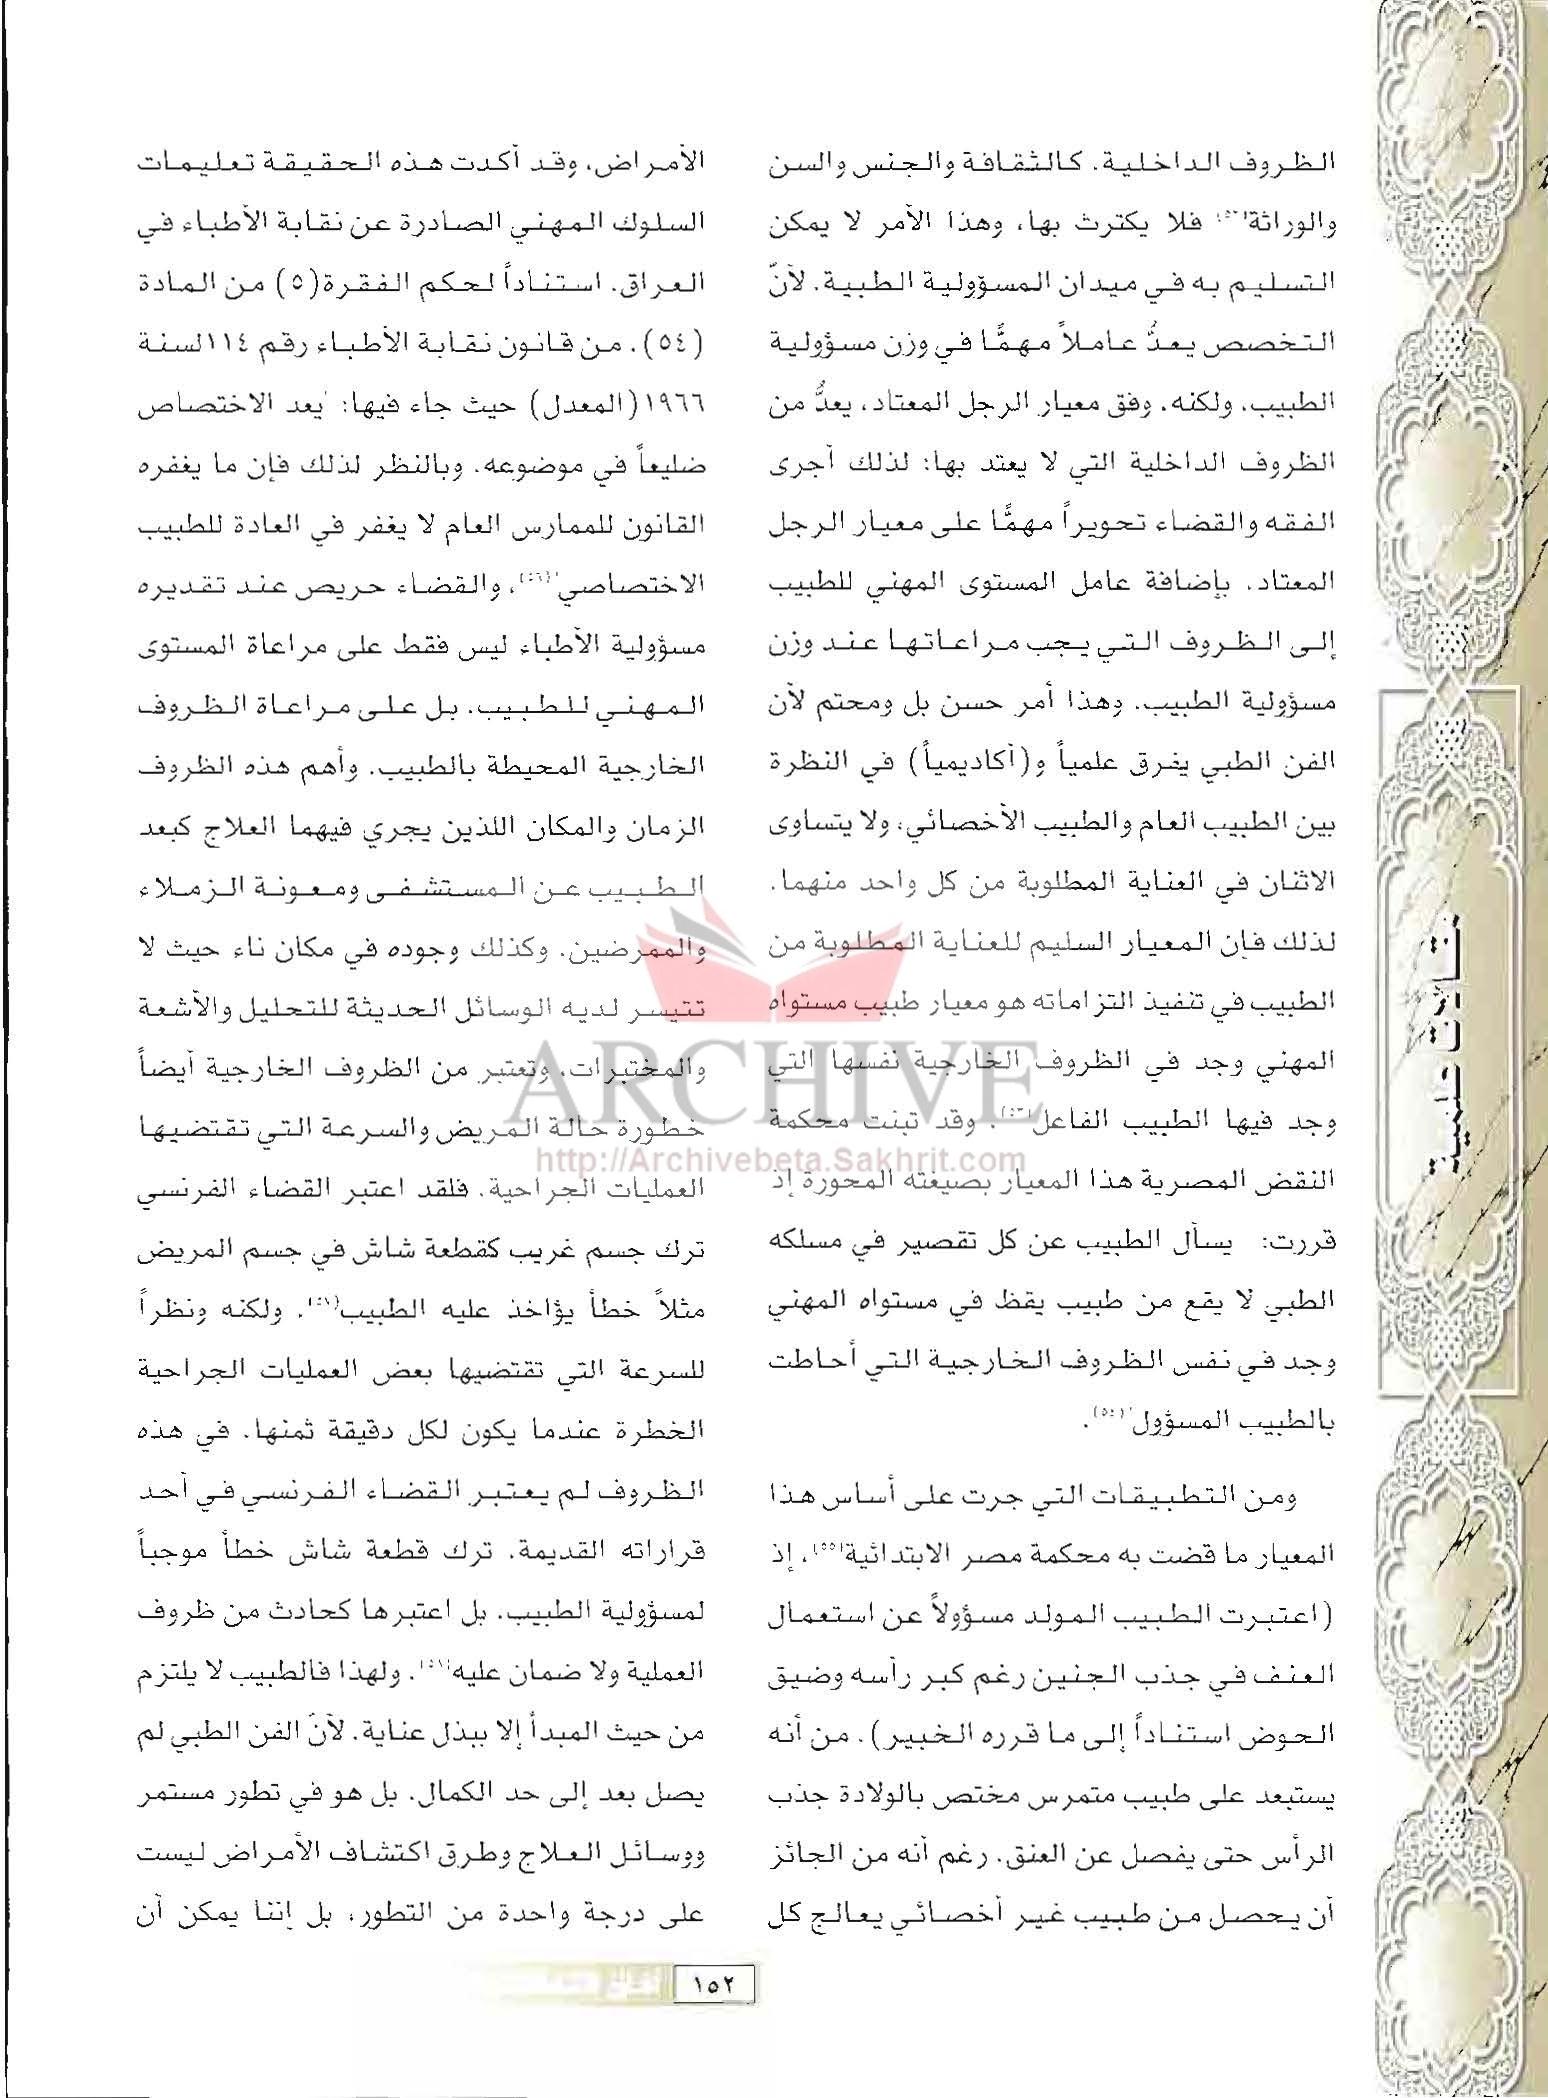 الظروف الداخلية. كالثقافة والجنس والسن
والوراثة(٥٢) فلا يكترث بها، وهذا الأمر لا يمكن
التسليم به في ميدان المسؤولية الطبية. لأنّ
التخصص يعدُّ عاملاً مهمًّا في وزن مسؤولية
الطبيب، ولكنه، وفق معيار الرجل المعتاد، يعدُّ من
الظروف الداخلية التي لا يعتد بها: لذلك أجرى
الفقه والقضاء تحويراً مهمًّا على معيار الرجل
المعتاد. بإضافة عامل المستوى المهني للطبيب
إلى الظروف التي يجب مراعاتها عند وزن
مسؤولية الطبيب. وهذا أمر حسن بل ومحتم لأن
الفن الطبي يفرق علمياً و(أكاديمياً) في النظرة
بين الطبيب العام والطبيب الأخصائي، ولا يتساوى
الاثنان في العناية المطلوبة من كل واحد منهما.
لذلك فإن المعيار السليم للعناية المطلوبة من
الطبيب في تنفيذ التزاماته هو معيار طبيب مستواه
المهني وجد في الظروف الخارجية نفسها التي
وجد فيها الطبيب الفاعل(٥٣). وقد تبنت محكمة
النقض المصرية هذا المعيار بصيغته المحورة إذ
قررت: يسأل الطبيب عن كل تقصير في مسلكه
الطبي لا يقع من طبيب يقظ في مستواه المهني
وجد في نفس الظروف الخارجية التي أحاطت
بالطبيب المسؤول'(٥٤).
ومن التطبيقات التي جرت على أساس هذا
المعيار ما قضت به محكمة مصر الابتدائية(٥٥)، إذ
(اعتبرت الطبيب المولد مسؤولاً عن استعمال
العنف في جذب الجنين رغم كبر رأسه وضيق
الحوض استناداً إلى ما قرره الخبير). من أنه
يستبعد على طبيب متمرس مختص بالولادة جذب
الرأس حتى يفصل عن العنق. رغم أنه من الجائز
أن يحصل من طبيب غير أخصائي يعالج كل
الأمراض، وقد أكدت هذه الحقيقة تعليمات
السلوك المهني الصادرة عن نقابة الأطباء في
العراق. استناداً لحكم الفقرة(٥) من المادة
(٥٤). من قانون نقابة الأطباء رقم ١١٤لسنة
١٩٦٦(المعدل) حيث جاء فيها: 'يعد الاختصاص
ضليعاً في موضوعه. وبالنظر لذلك فإن ما يغفره
القانون للممارس العام لا يغفر في العادة للطبيب
الاختصاصي'(٥٦)، والقضاء حريص عند تقديره
مسؤولية الأطباء ليس فقط على مراعاة المستوى
المهني للطبيب. بل على مراعاة الظروف
الخارجية المحيطة بالطبيب. وأهم هذه الظروف
الزمان والمكان اللذين يجري فيهما العلاج كبعد
الطبيب عن المستشفى ومعونة الزملاء
والممرضين. وكذلك وجوده في مكان ناء حيث لا
تتيسر لديه الوسائل الحديثة للتحليل والأشعة
والمختبرات، وتعتبر من الظروف الخارجية أيضاً
خطورة حالة المريض والسرعة التي تقتضيها
العمليات الجراحية. فلقد اعتبر القضاء الفرنسي
ترك جسم غريب كقطعة شاش في جسم المريض
مثلاً خطأ يؤاخذ عليه الطبيب(٥٧). ولكنه ونظراً
للسرعة التي تقتضيها بعض العمليات الجراحية
الخطرة عندما يكون لكل دقيقة ثمنها. في هذه
الظروف لم يعتبر القضاء الفرنسي في أحد
قراراته القديمة. ترك قطعة شاش خطأ موجباً
لمسؤولية الطبيب. بل اعتبرها كحادث من ظروف
العملية ولا ضمان عليه(٥٨). ولهذا فالطبيب لا يلتزم
من حيث المبدأ إلا ببذل عناية. لأنّ الفن الطبي لم
يصل بعد إلى حد الكمال. بل هو في تطور مستمر
ووسائل العلاج وطرق اكتشاف الأمراض ليست
على درجة واحدة من التطور، بل إننا يمكن أن
ARCHIVE
http://Archivebeta.Sakhrit.com
١٥٢